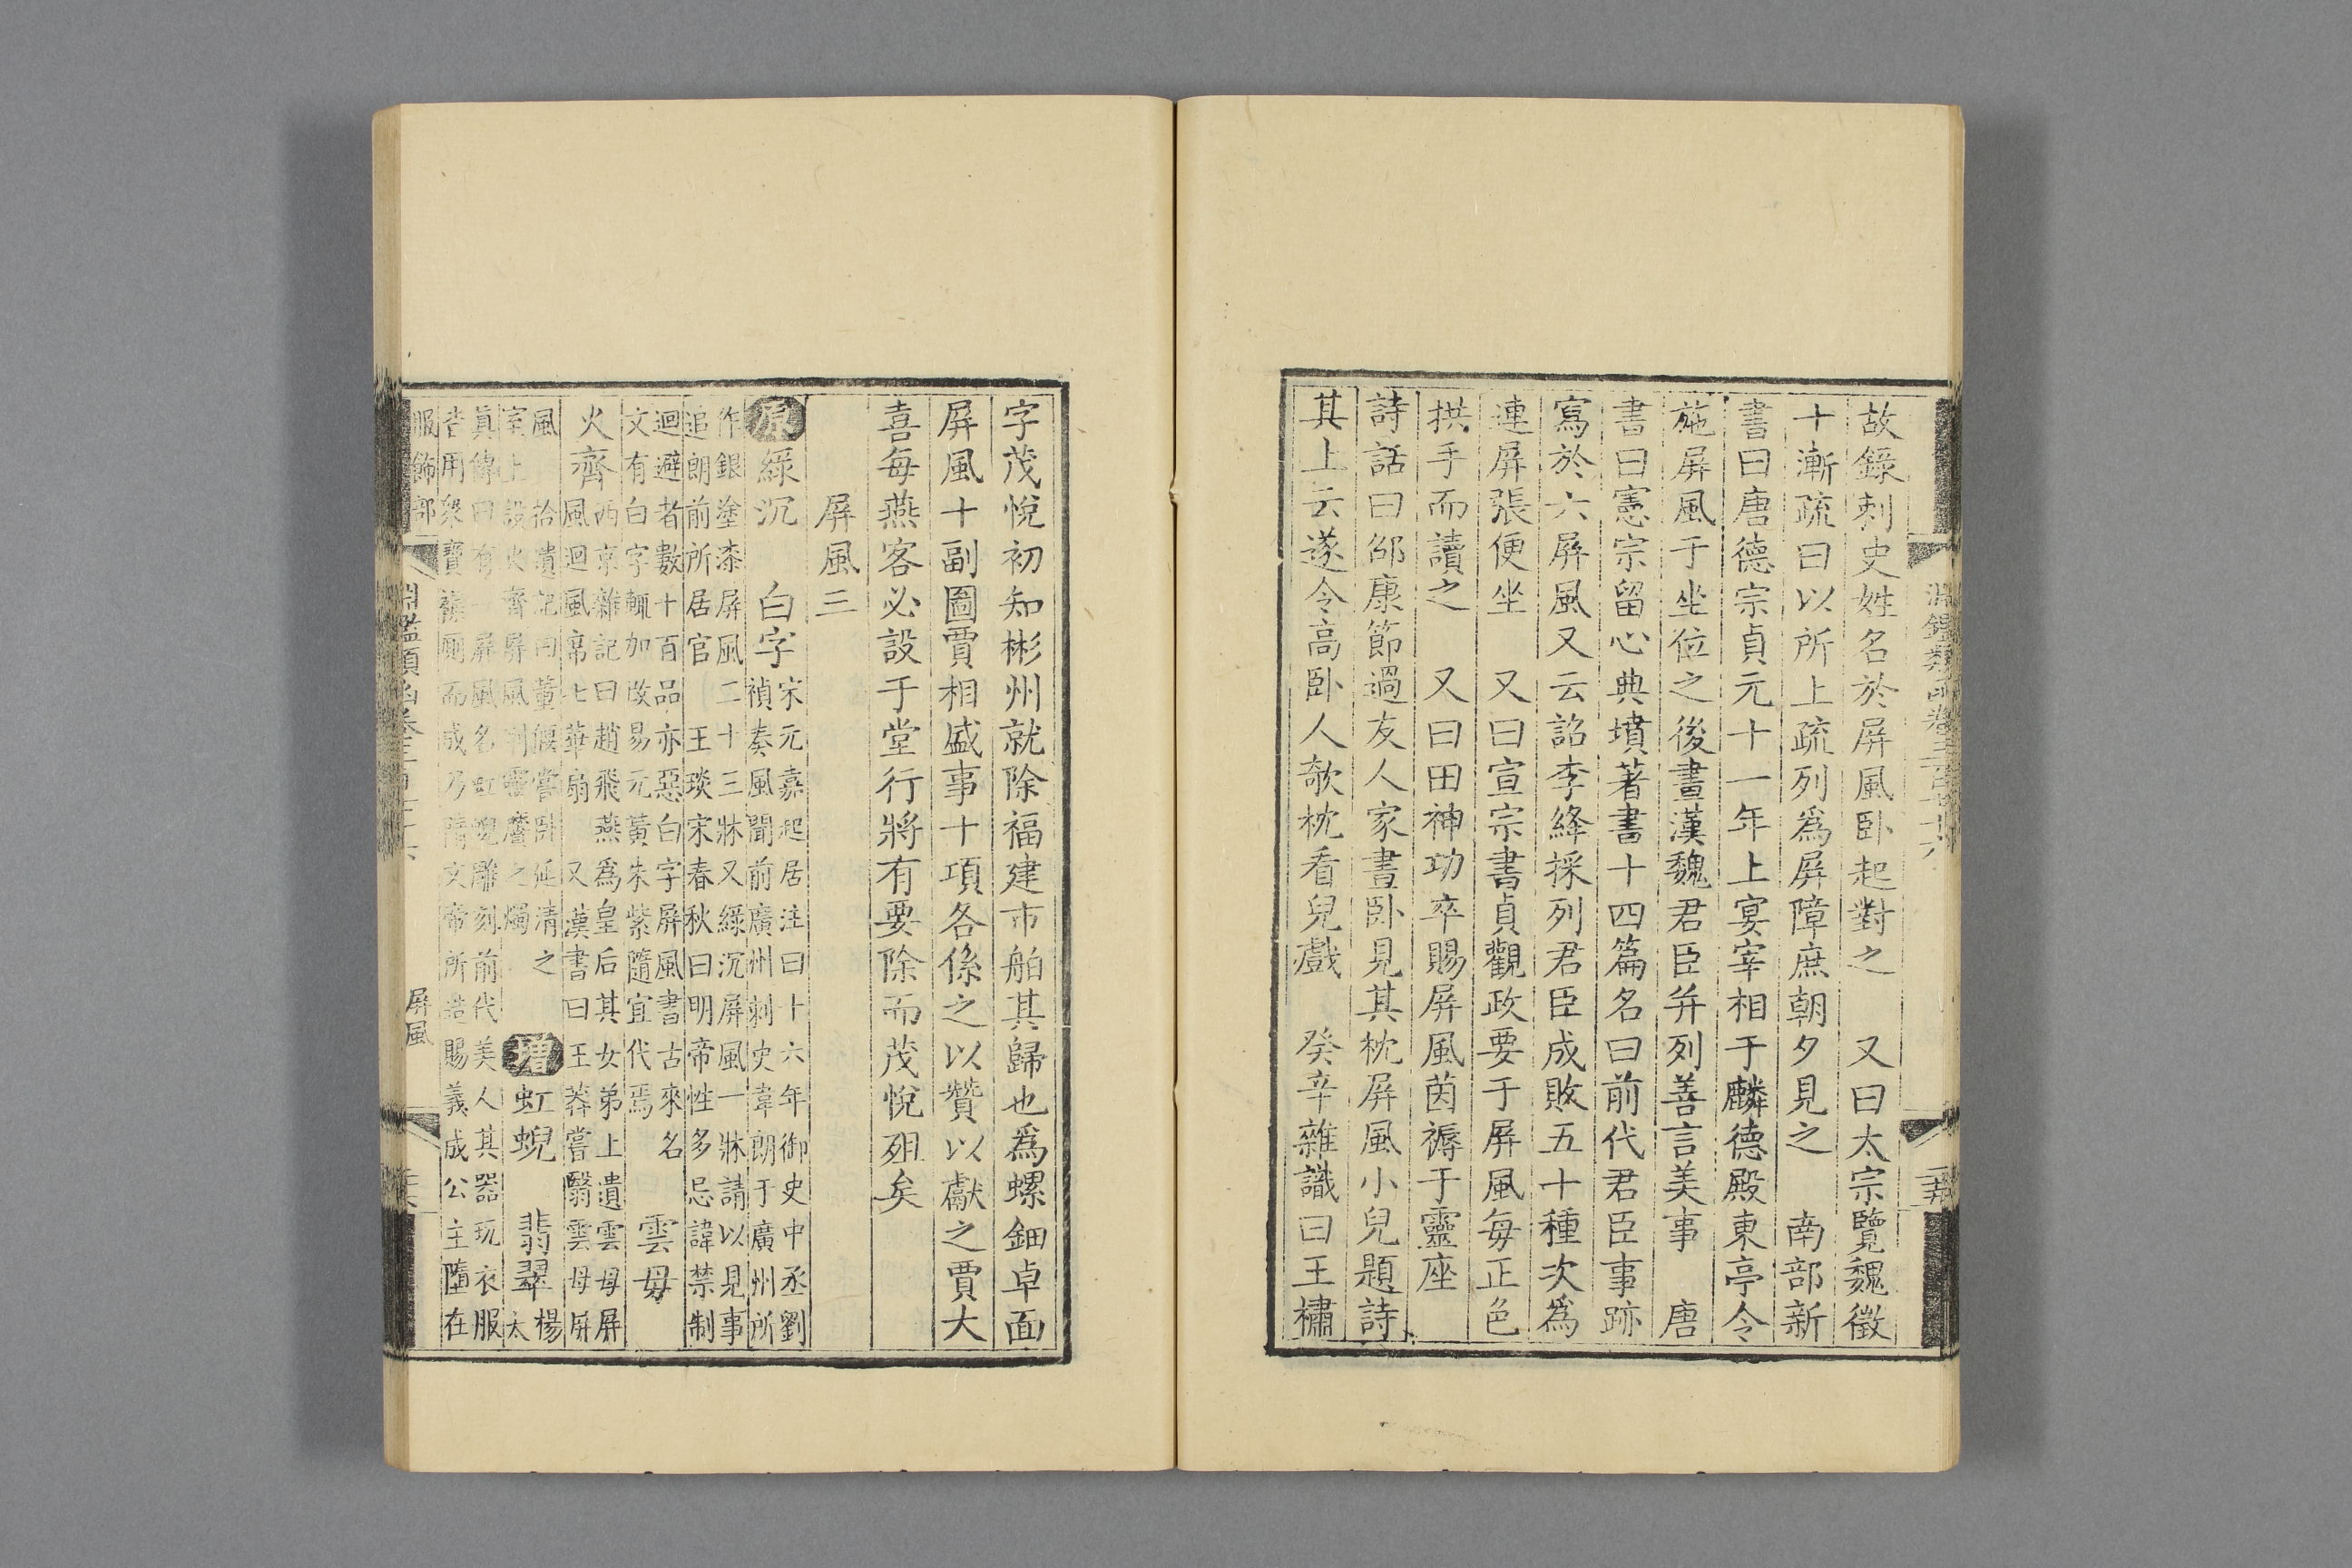 故錄刺史姓名於屏風卧起對之 又曰太宗覽魏徵
十漸疏曰以所上疏列爲屏障庶朝夕見之 南部新
書曰唐德宗貞元十一年上宴宰相于麟德殿東亭令
施屏風于坐位之後畫漢魏君臣并列善言美事 唐
書曰憲宗留心典墳著書十四篇名曰前代君臣事跡
寫於六屏風又云詔李絳採列君臣成敗五十種次爲
連屏張便坐 又曰宣宗書貞觀政要于屏風每正色
拱手而讀之 又曰田神功卒賜屏風茵褥于靈座
詩話曰邵康節過友人家晝卧見其枕屏風小兒題詩
其上云遂令高卧人欹枕看兒戲 癸辛雜識曰王橚
字茂悅初知彬州就除福建市舶其歸也爲螺鈿卓面
屏風十副圖賈相盛事十項各係之以贊以獻之賈大
喜每燕客必設于堂行將有要除而茂悅殂矣
屏風三
原綠沉 白字 宋元嘉起居注曰十六年御史中丞劉
禎奏風聞前廣州刺史韋朗于廣州所
作銀塗漆屏風二十三牀又綠沉屏風一牀請以見事
追朗前所居官 王琰宋春秋曰明帝性多忌諱禁制
迴避者數十百品亦惡白字屏風書古來名
文有白字輒加改易元黃朱紫隨宜代焉 雲母
火齊 西京雜記曰趙飛燕爲皇后其女弟上遺雲母屏
風迴風席七華扇 又漢書曰王莽嘗翳雲母屏
風 拾遺記曰董偃嘗卧延清之
室上設火齊屏風列靈麻之燭 增虹蜺 翡翠 楊太
真傳曰有一屏風名虹蜺雕刻前代美人其器玩衣服
皆用衆寶雜厠而成乃隋文帝所造賜義成公主隨在
服飾部
淵鑑類函卷三百七十六 屏風